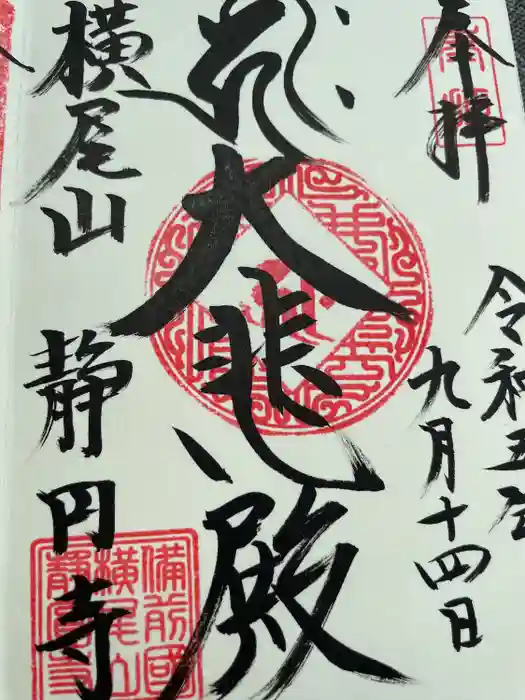 奉拝
令和五年
九月十四日
大悲殿
横尾山
静円寺
備前國
横尾山
静圓寺